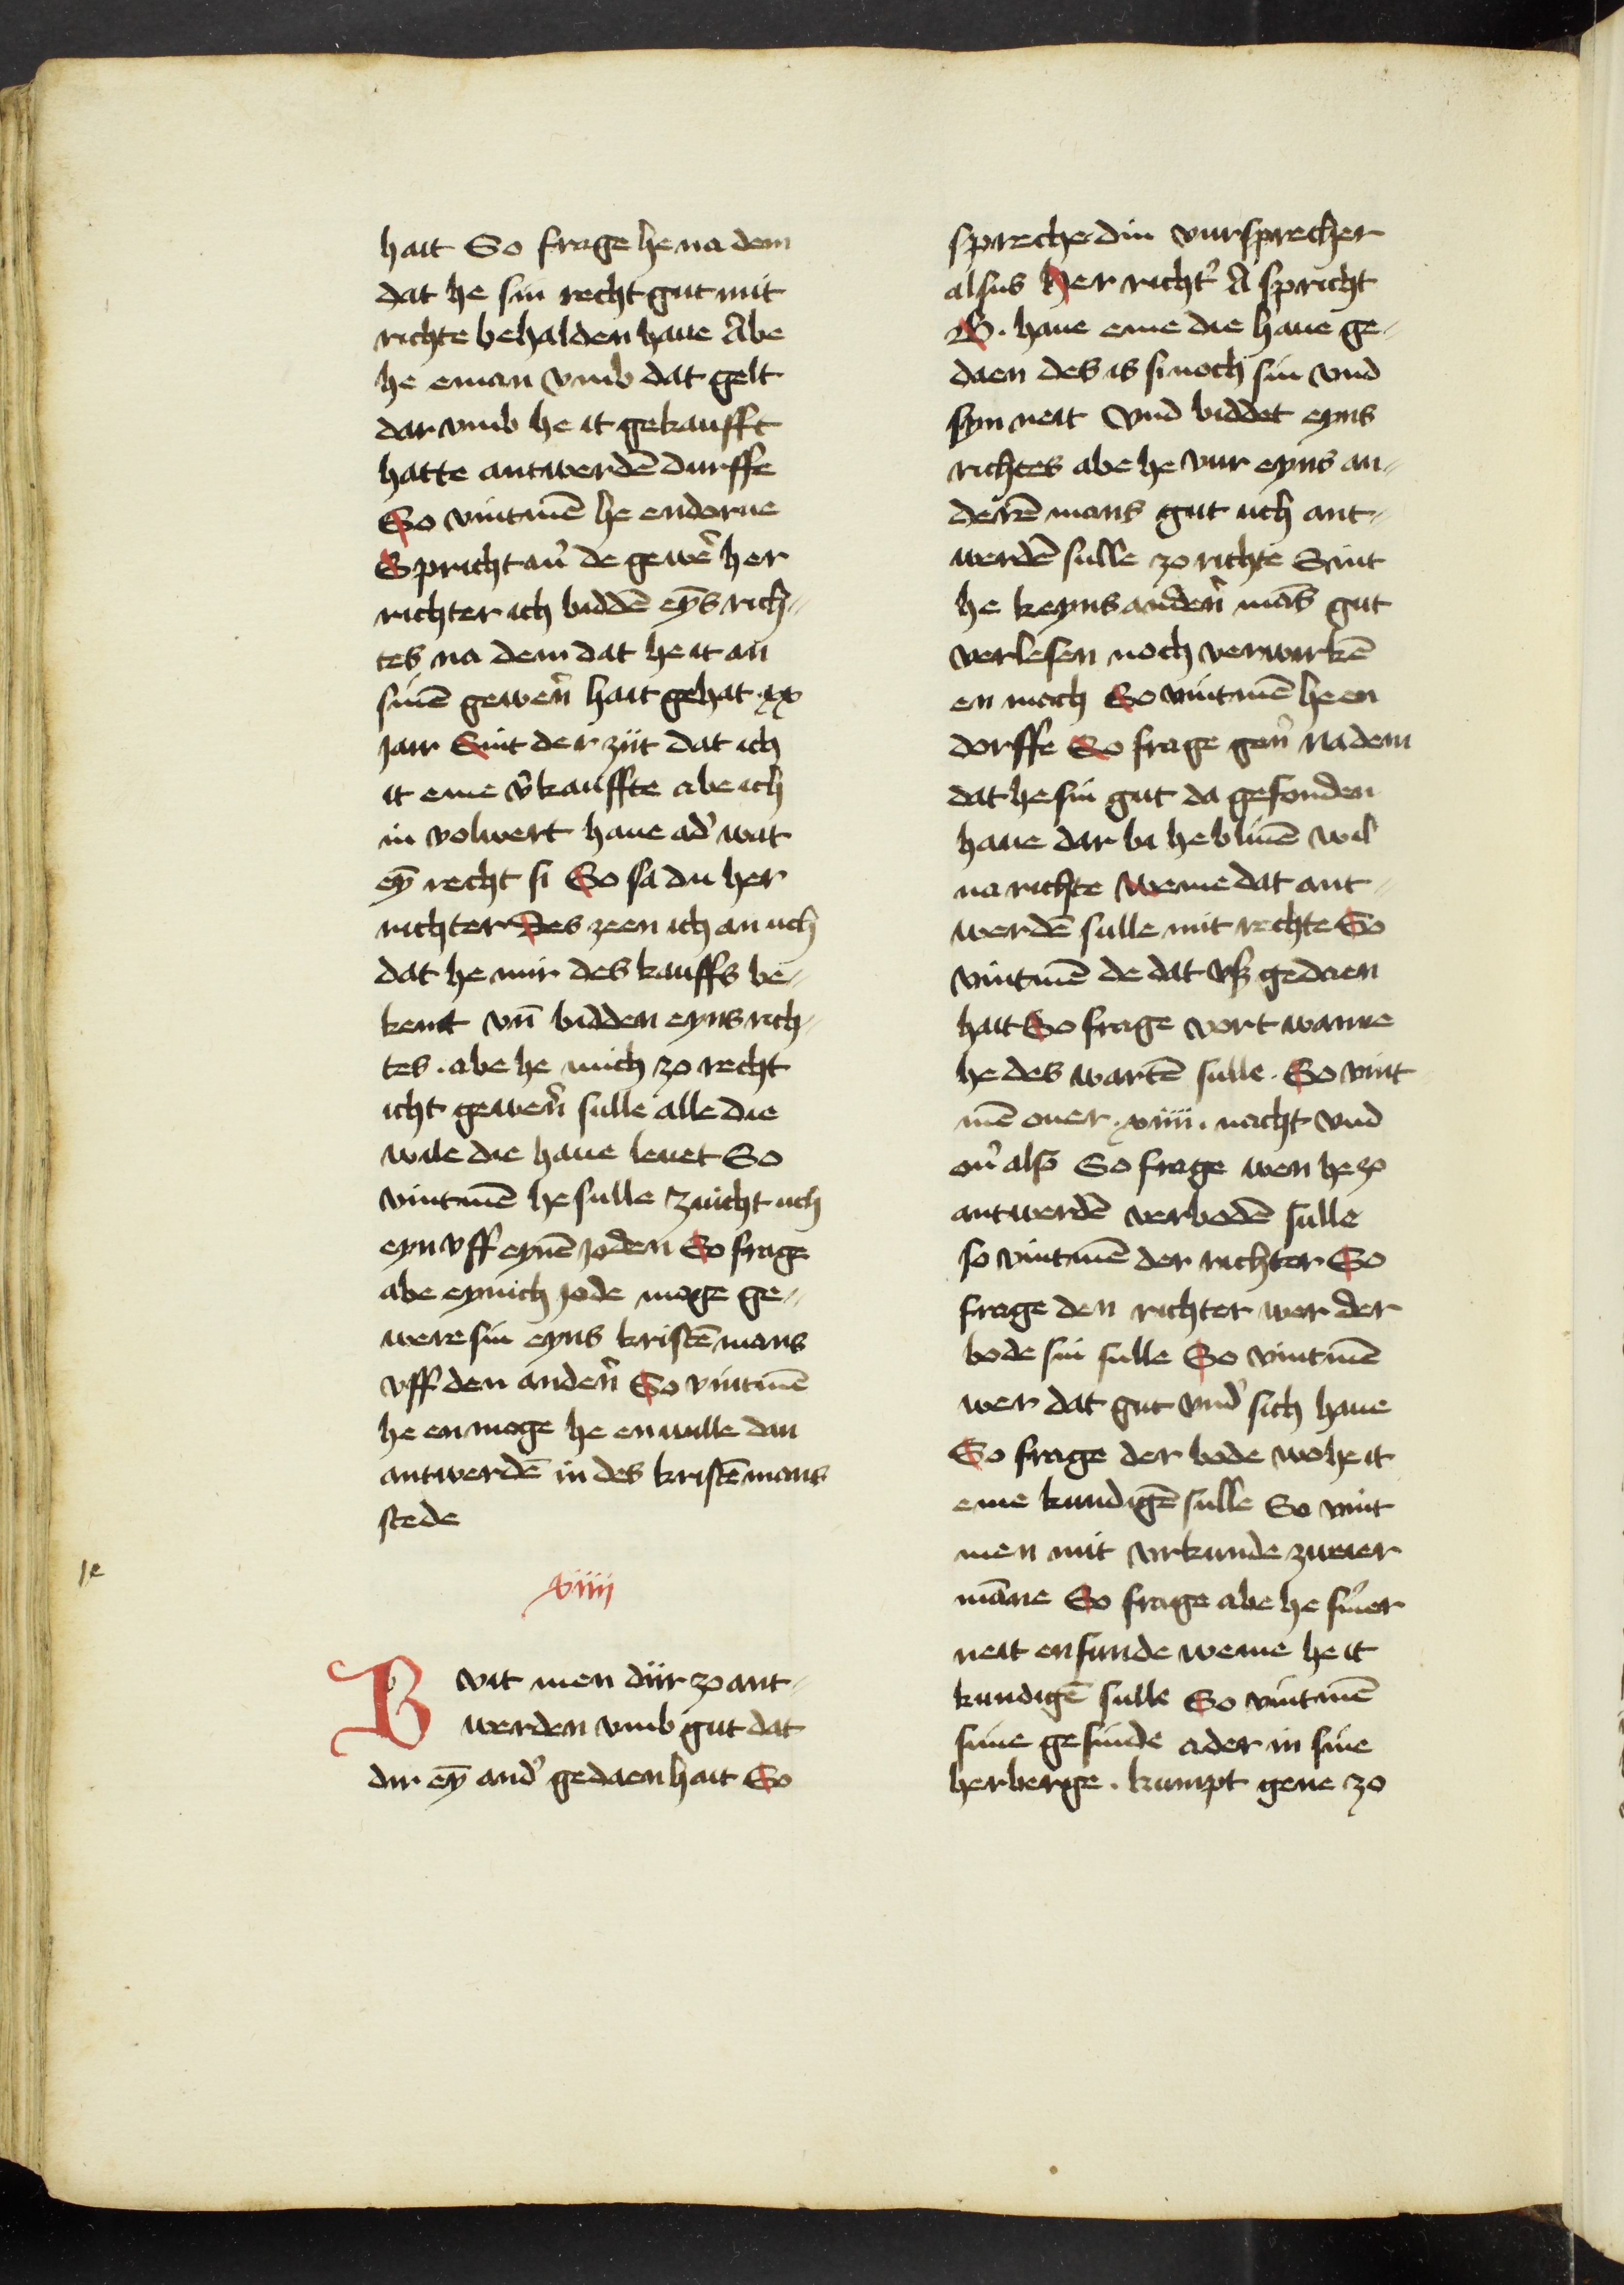 hait So frage he na dem
dat he sin recht gut mit
richte behalden haue Abe
he eman vmb dat gelt
dar vmb he it gekaufft
hatte antwerdē durffe
So vintmē he endorue
Spricht au᷑ de gewe᷑ her
richter ich biddē ey̅s rich-
tes na dem dat he it an
sinē gewer̅ hait gehat xx
Jair Sint der zijt dat ich
it eme v᷑kauffte abe ich
in volwert haue ad᷑ wat
ey̅ recht si So sa du her
richter Des zeen ich an uch
dat he mir des kauffs be-
kent vn̅ bidden eyns rich-
tes . abe he mich zo recht
icht gewer̅ sulle alle die
wile die haue leuet So
vintmē he sulle zuicht uch
eyn vff eynē Joden So frage
abe eynich Jode moge ge-
were sin eyns kristē mans
vff den ander̅ So vintmē
he en moge he en wille dan
antwerdē in des kristē mans
stede
viiij
Bvit men dir zo ant-
werden vmb gut dat
dir ey̅ and᷑ gedaen hait So
spreche din vursprecher
alsus Her richt᷑ A spricht
B . haue eme die haue ge-
daen des is si noch sin vnd
syn neit Vnd biddet eyns
richtes abe he vur eyns an-
derē mans gut uch ant-
werdē sulle zo richte Sint
he keyns ander̅ mās gut
verlesen noch verwirkē
en mach So vintmē he en
dorffe So frage gen᷑ Na dem
dat he sin gut da gefonden
haue dar bi he bliuē wil
na richte weme dat ant-
werdē sulle mit rechte So
vintmē de dat vß gedaen
hait So frage vort wanne
he des wartē sulle . So vint
mē ouer . xiiii . nacht vnd
ou᷑ also So frage wen he zo
antwerdē verbodē sulle
so vintmē der richter So
frage den richter wer der
bode sin sulle So vintmē
wer dat gut vnd᷑ sich haue
So frage der bode wo he it
eme kundigē sulle So vint
men mit vrkunde zweier
māne So frage abe he sin᷑er
neit enfunde weme he it
kundigē sulle So vintmē
sime gesinde ader in sine
herberge . kumpt gene zo